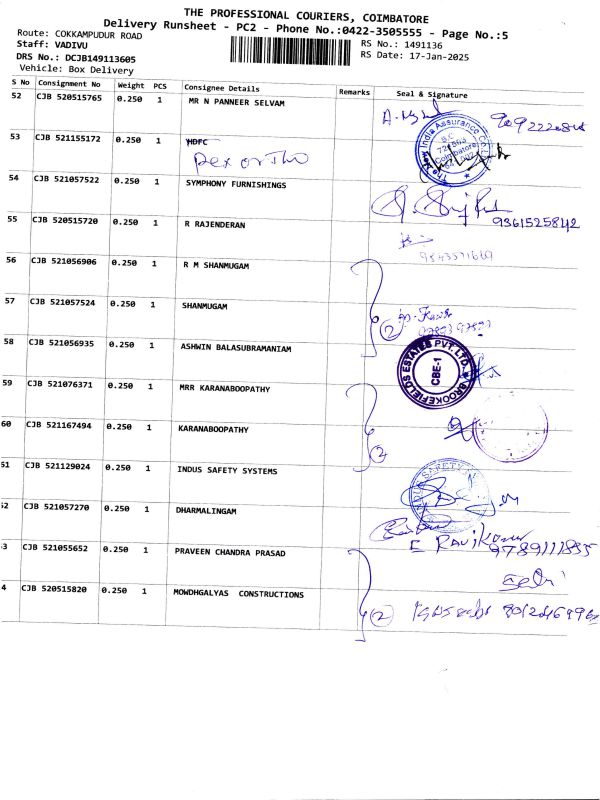 THE PROFESSIONAL COURIERS, COIMBATORE
Delivery Runsheet - PC2 - Phone No.:0422-3505555 - Page No.:5
Route: COKKAMPUDUR ROAD RS No.: 1491136
Staff: VADIVU RS Date: 17-Jan-2025
DRS No.: DCJB149113605
Vehicle: Box Delivery
S No Consignment No Weight PCS Consignee Details Remarks Seal & Signature
52 CJB 520515765 0.250 1 MR N PANNEER SELVAM
53 CJB 521155172 0.250 1 HDFC
The New India Assurance Co. Ltd. Coimbatore
54 CJB 521057522 0.250 1 SYMPHONY FURNISHINGS
9361525842
55 CJB 520515720 0.250 1 R RAJENDERAN
56 CJB 521056906 0.250 1 R M SHANMUGAM
57 CJB 521057524 0.250 1 SHANMUGAM
2
58 CJB 521056935 0.250 1 ASHWIN BALASUBRAMANIAM
BROOKEFIELDS ESTATES PVT. LTD. CBE-1
59 CJB 521076371 0.250 1 MRR KARANABOOPATHY
60 CJB 521167494 0.250 1 KARANABOOPATHY
2
51 CJB 521129024 0.250 1 INDUS SAFETY SYSTEMS
52 CJB 521057270 0.250 1 DHARMALINGAM
E Ravikumar 9789111835
53 CJB 521055652 0.250 1 PRAVEEN CHANDRA PRASAD
4 CJB 520515820 0.250 1 MOWDHGALYAS CONSTRUCTIONS
2